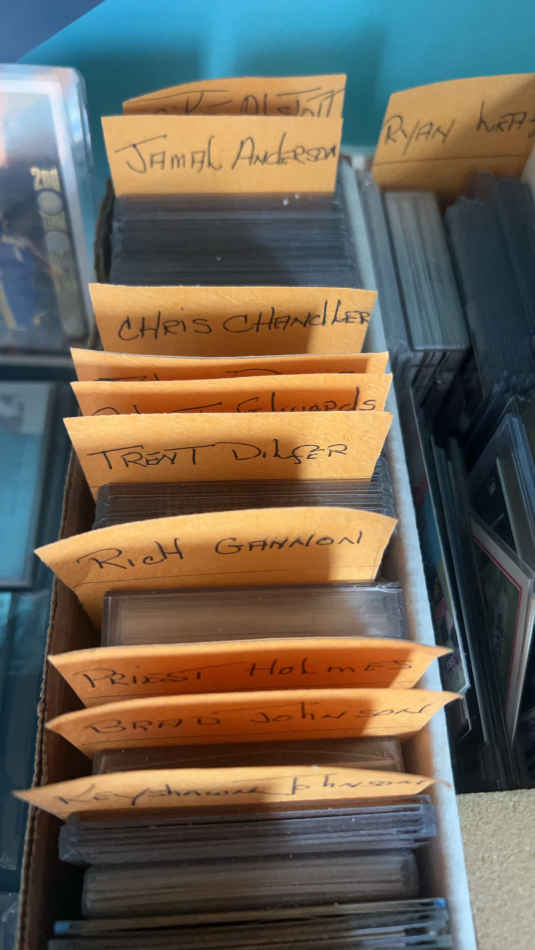 Alstott
Jamal Anderson
Ryan
Chris Chandler
Edwards
Trent Dilfer
Rich Gannon
Priest Holmes
Brad Johnson
Keyshawn Johnson
2nd